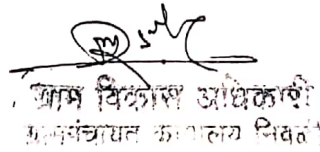 ग्राम विकास अधिकारी
ग्रामपंचायत कार्यालय